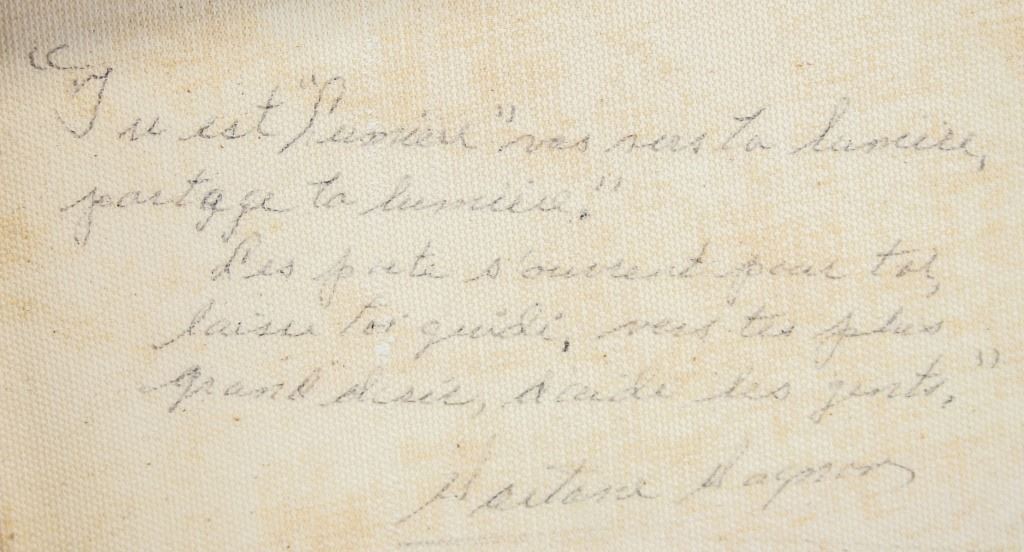 "Tu est "lumière" vas vers ta lumière,
partage ta lumière."
Les porte s'ouvrent pour toi,
laisse toi guidé, vers tes plus
grand désir, d'aide les gents."
Gaitane Gagnon